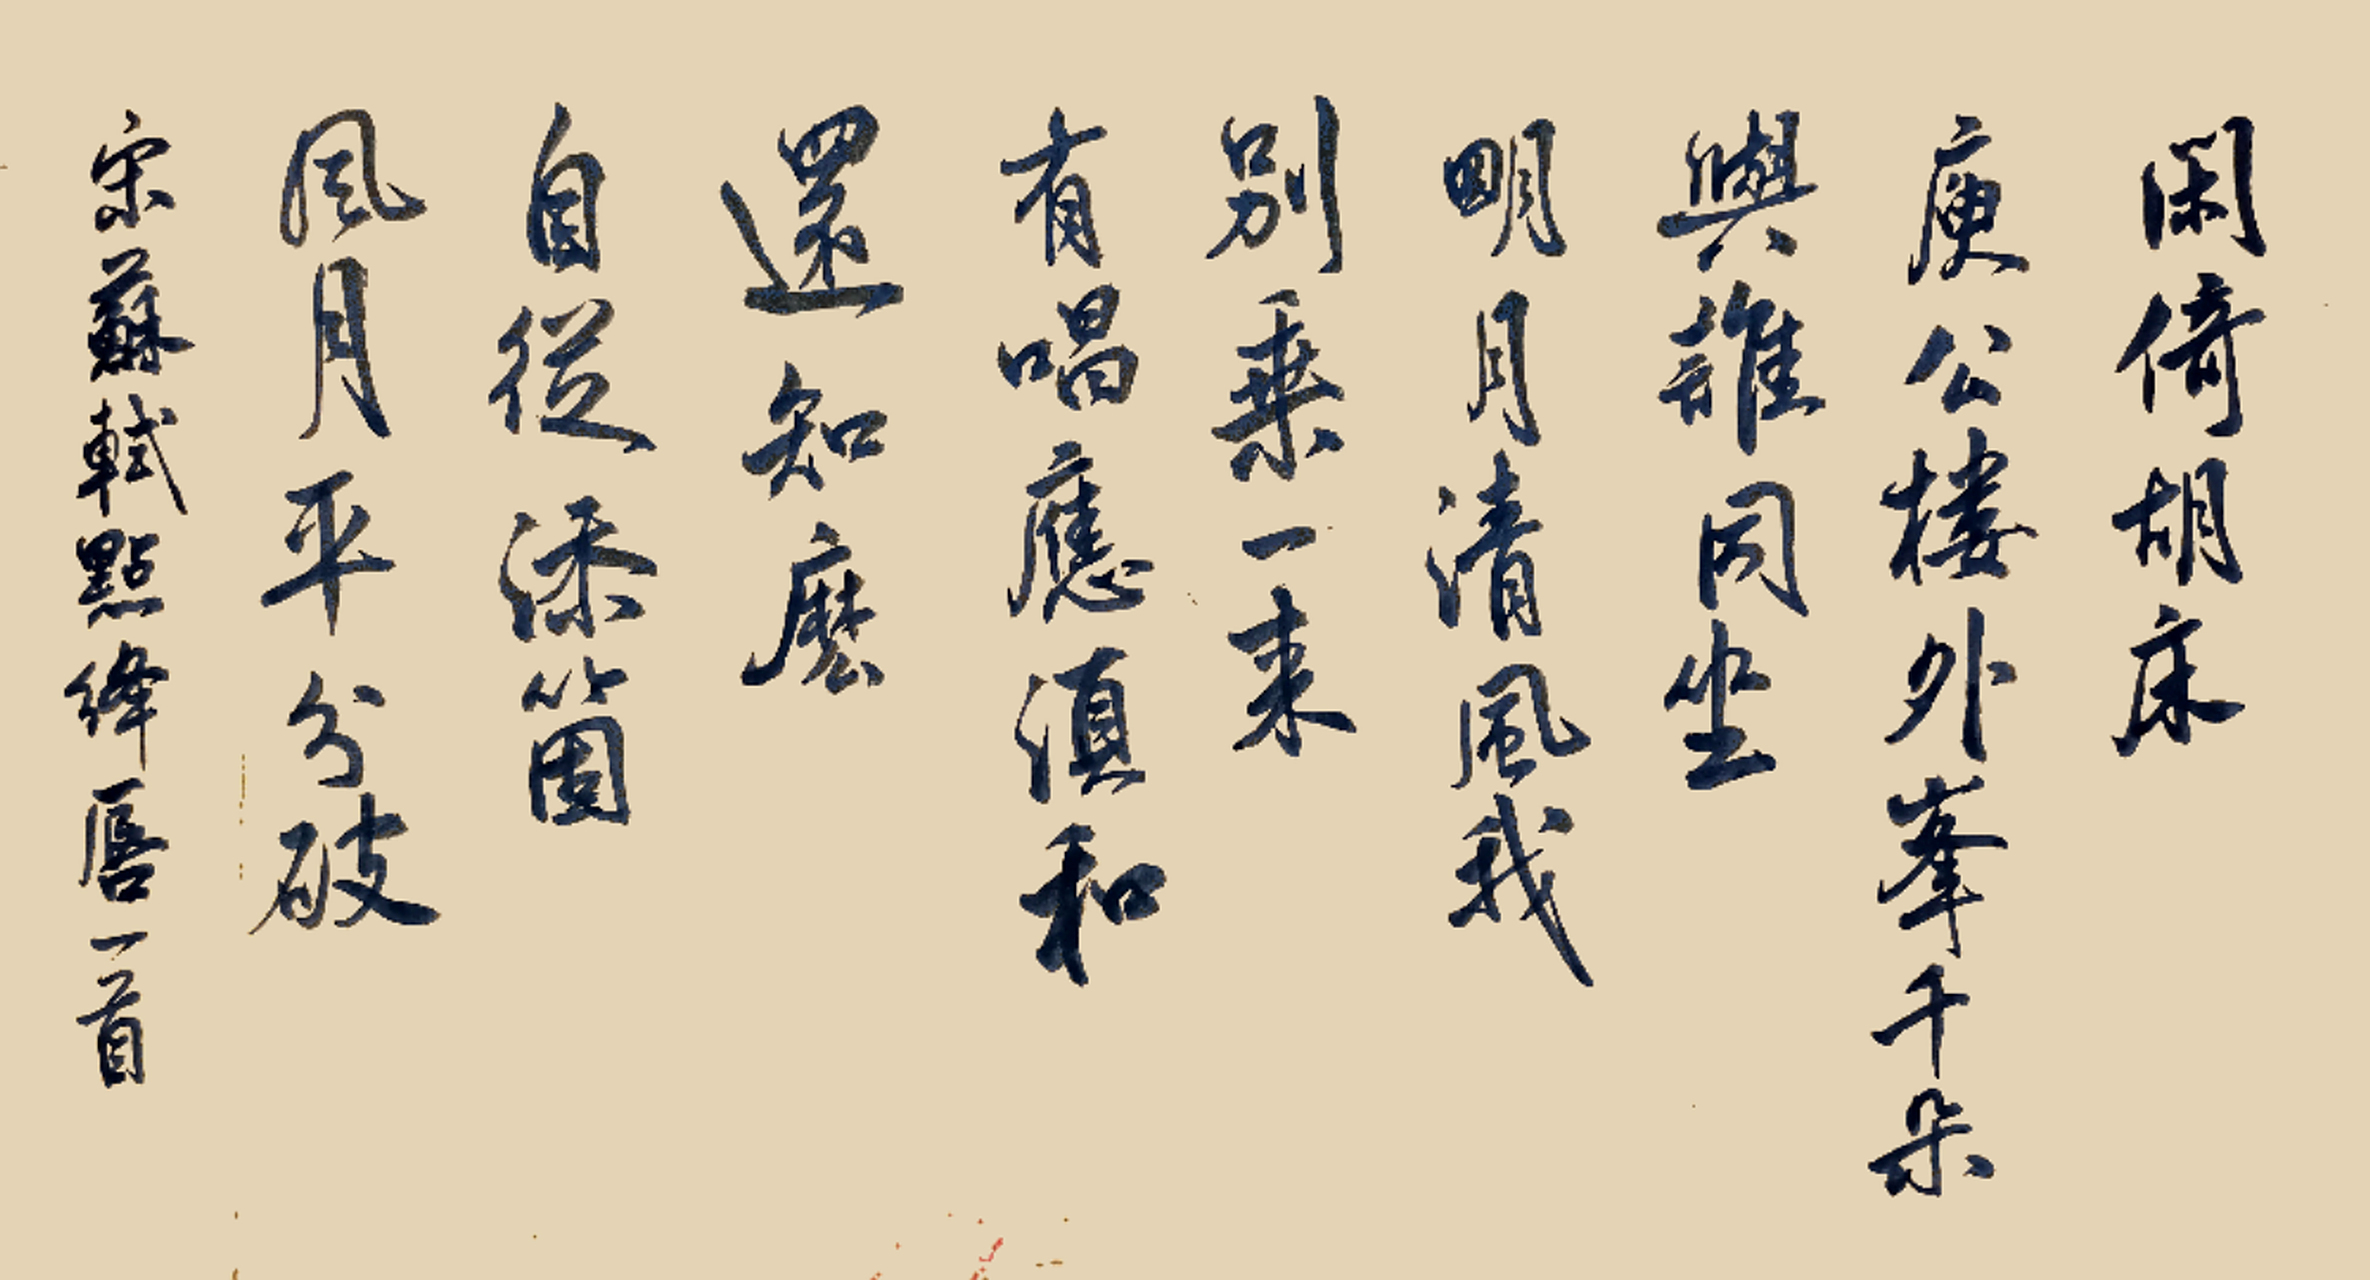 閑倚胡床
庾公樓外峯千朵
與誰同坐
明月清風我
別乘一来
有唱應須和
還知麼
自從添箇
風月平分破
宋蘇軾點絳唇一首